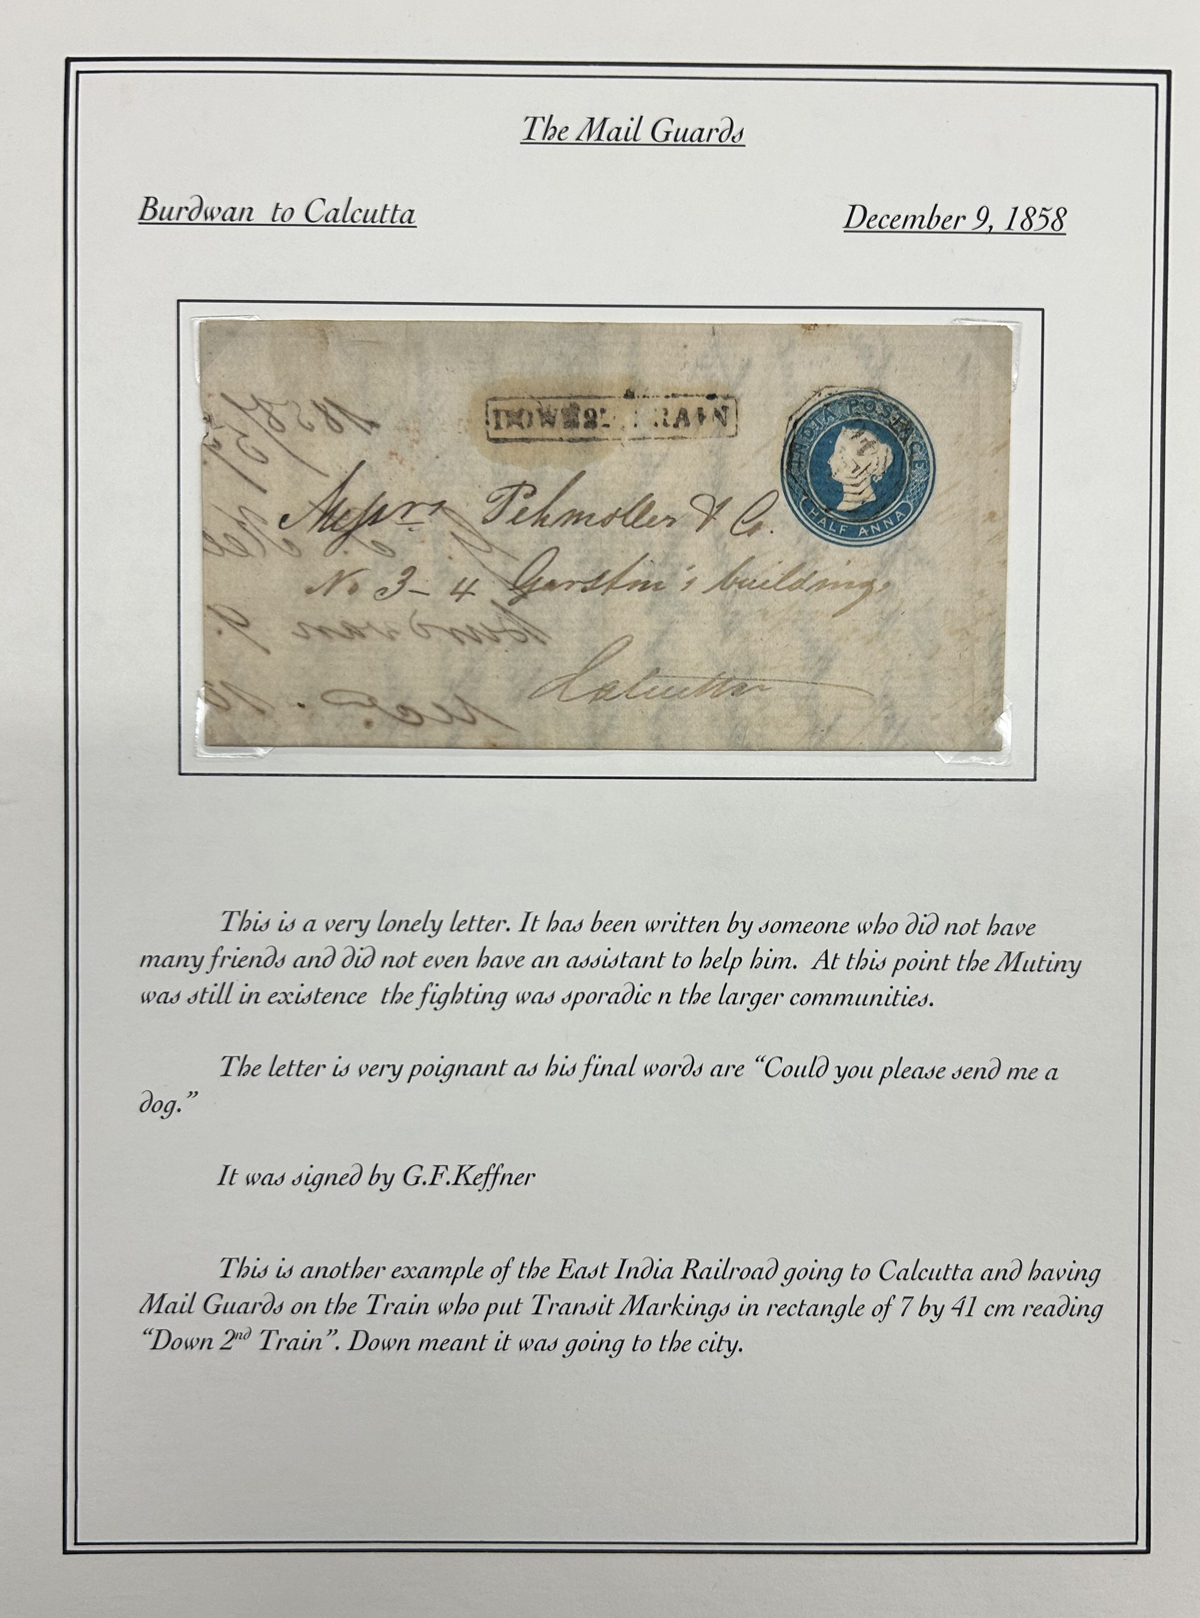 The Mail Guards
Burdwan to Calcutta
December 9, 1858
DOWN 2ND TRAIN
INDIA POSTAGE
HALF ANNA
Messrs Pehmoller & Co.
No 3-4 Garstin's buildings
Calcutta
1858
Burdwan 9.
Recd. 10
This is a very lonely letter. It has been written by someone who did not have
many friends and did not even have an assistant to help him. At this point the Mutiny
was still in existence the fighting was sporadic n the larger communities.
The letter is very poignant as his final words are “Could you please send me a
dog.”
It was signed by G.F.Keffner
This is another example of the East India Railroad going to Calcutta and having
Mail Guards on the Train who put Transit Markings in rectangle of 7 by 41 cm reading
“Down 2nd Train”. Down meant it was going to the city.